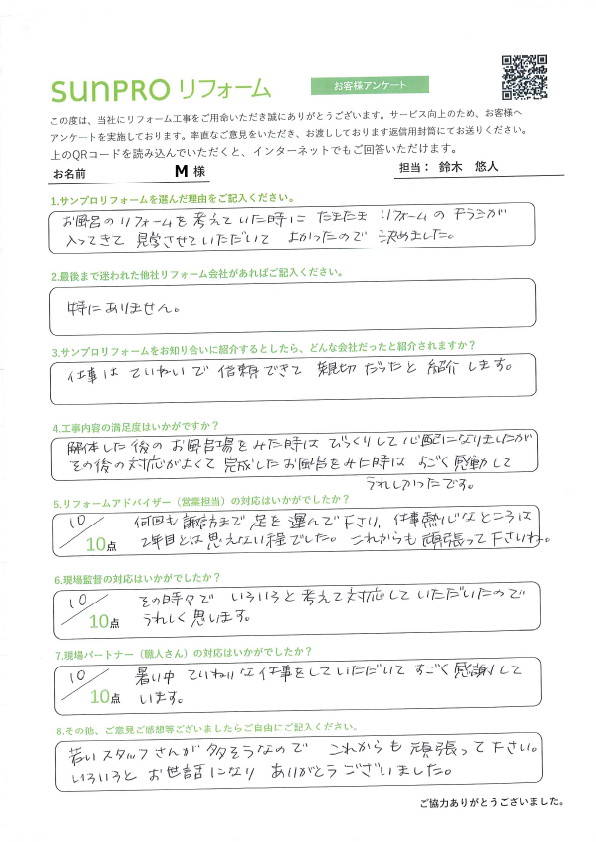 SUNPRO リフォーム
お客様アンケート
この度は、当社にリフォーム工事をご用命いただき誠にありがとうございます。サービス向上のため、お客様へ
アンケートを実施しております。率直なご意見をいただき、お渡ししております返信用封筒にてお送りください。
上のQRコードを読み込んでいただくと、インターネットでもご回答いただけます。
お名前 M 様 担当： 鈴木 悠人
1.サンプロリフォームを選んだ理由をご記入ください。
お風呂のリフォームを考えていた時に たまたま リフォームの チラシが
入ってきて 見学させていただいて よかったので 決めました。
2.最後まで迷われた他社リフォーム会社があればご記入ください。
特にありません。
3.サンプロリフォームをお知り合いに紹介するとしたら、どんな会社だったと紹介されますか？
仕事は ていねいで 信頼できて 親切 だったと 紹介 します。
4.工事内容の満足度はいかがですか？
解体した後の お風呂場をみた時は びっくりして心配になりましたが
その後の対応がよくて 完成したお風呂をみた時は すごく感動して
うれしかったです。
5.リフォームアドバイザー（営業担当）の対応はいかがでしたか？
10／10点
何回も 諏訪まで 足を運んで下さり、仕事熱心なところは
2年目とは思えない程でした。これからも頑張って下さいね。
6.現場監督の対応はいかがでしたか？
10／10点
その時々で いろいろと考えて対応していただいたので
うれしく思います。
7.現場パートナー（職人さん）の対応はいかがでしたか？
10／10点
暑い中 ていねいな仕事をしていただいて すごく感謝して
います。
8.その他、ご意見ご感想等ございましたらご自由にご記入ください。
若いスタッフさんが多そうなので これからも頑張って下さい。
いろいろと お世話になり ありがとうございました。
ご協力ありがとうございました。